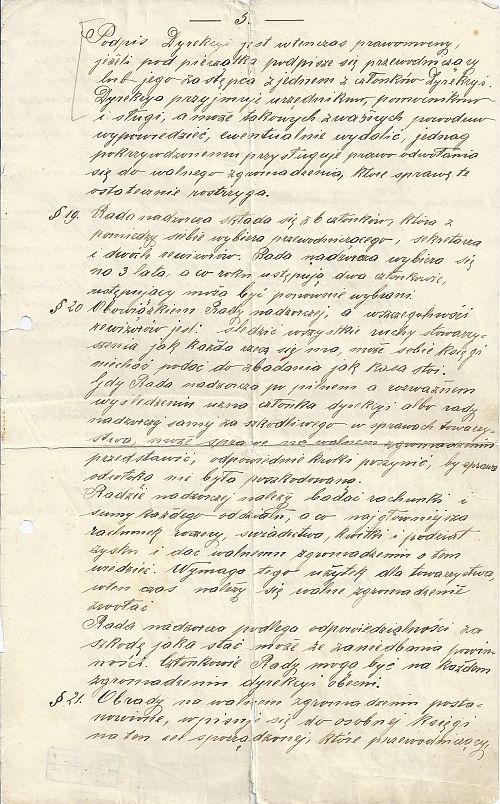 — 5. —
Podpis Dyrekcyi jest wtenczas prawomocny,
jeżeli pod pieczątką podpisze się przewodniczący
lub jego zastępca z jednem z członków Dyrekcyi.
Dyrekcya przyjmuje urzędników, pomocników
i sługi, a może takowych z ważnych powodów
wypowiedzieć, ewentualnie wydalić, jednag
pokrzywdzonemu przysługuje prawo odwołania
się do walnego zgromadzenia, które sprawę tę
ostatecznie rostrzyga.
§ 19. Rada nadzorcza składa się z 6 członków, która z
pomiędzy siebie wybiera przewodniczącego, sekretarza
i dwóch rewizorów. Rada nadzorcza wybiera się
na 3 lata, a co roku ustępują dwa członkowie,
ustępujący możą być ponownie wybrani.
§ 20 Obowiązkiem Rady nadzorczej, a w szczególności
rewizorów jest: śledzić wszystkie ruchy stowarzy-
szenia jak każda rzecz się ma, może sobie księgi
niechać podać do zbadania jak kasa stoi.
Gdy Rada nadzorcza po pilnem a rozważnem
wyśledzeniu uzna członka dyrekcyi albo rady
nadzorczej samej za szkodliwego w sprawach towarzy-
stwa, może sprawę na walnem zgromadzeniu
przedstawić, odpowiednie kroki poczynić, by sprawa
odwłoką nie była poszkodowana.
Radzie nadzorczej należy badać rachunki i
sumy każdego oddziału, a co najgłówniejsza
rachunek roczny, świadectwa, kwitki i podział
zysku i dać walnemu zgromadzeniu o tem
wiedzieć. Wymaga tego użytek dla towarzystwa
wten czas należy się walne zgromadzenie
zwołać
Rada nadzorcza podlega odpowiedzialności za
szkodę jaka stać może ze zaniedbania powin-
ności. Członkowie Rady mogą być na każdem
zgromadzeniu dyrekcyi obecni.
§ 21. Obrady na walnem zgromadzeniu posta-
nowione, wpisuje się do osobnej księgi
na ten cel sporządzonej, które przewodniczący,